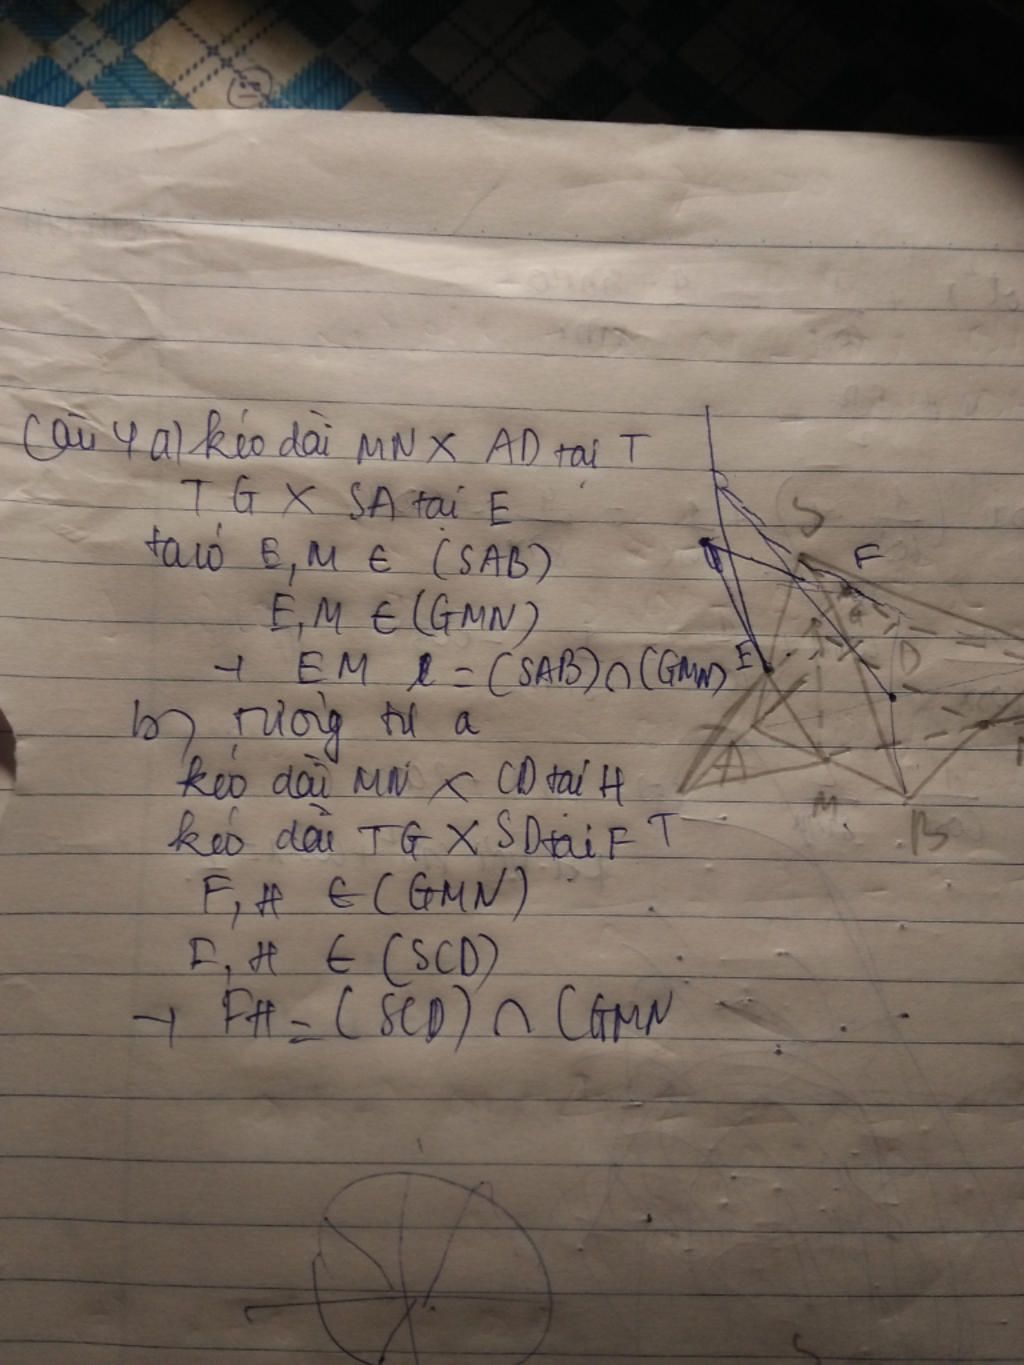 Câu 4 a) kéo dài MN X AD tại T
TG X SA tại E
ta có E, M ∈ (SAB)
E, M ∈ (GMN)
→ EM = (SAB) ∩ (GMN)
b) tương tự a
kéo dài MN X CD tại H
kéo dài TG X SD tại F
F, H ∈ (GMN)
F, H ∈ (SCD)
→ FH = (SCD) ∩ (GMN
S
F
G
E
D
A
M
B
T